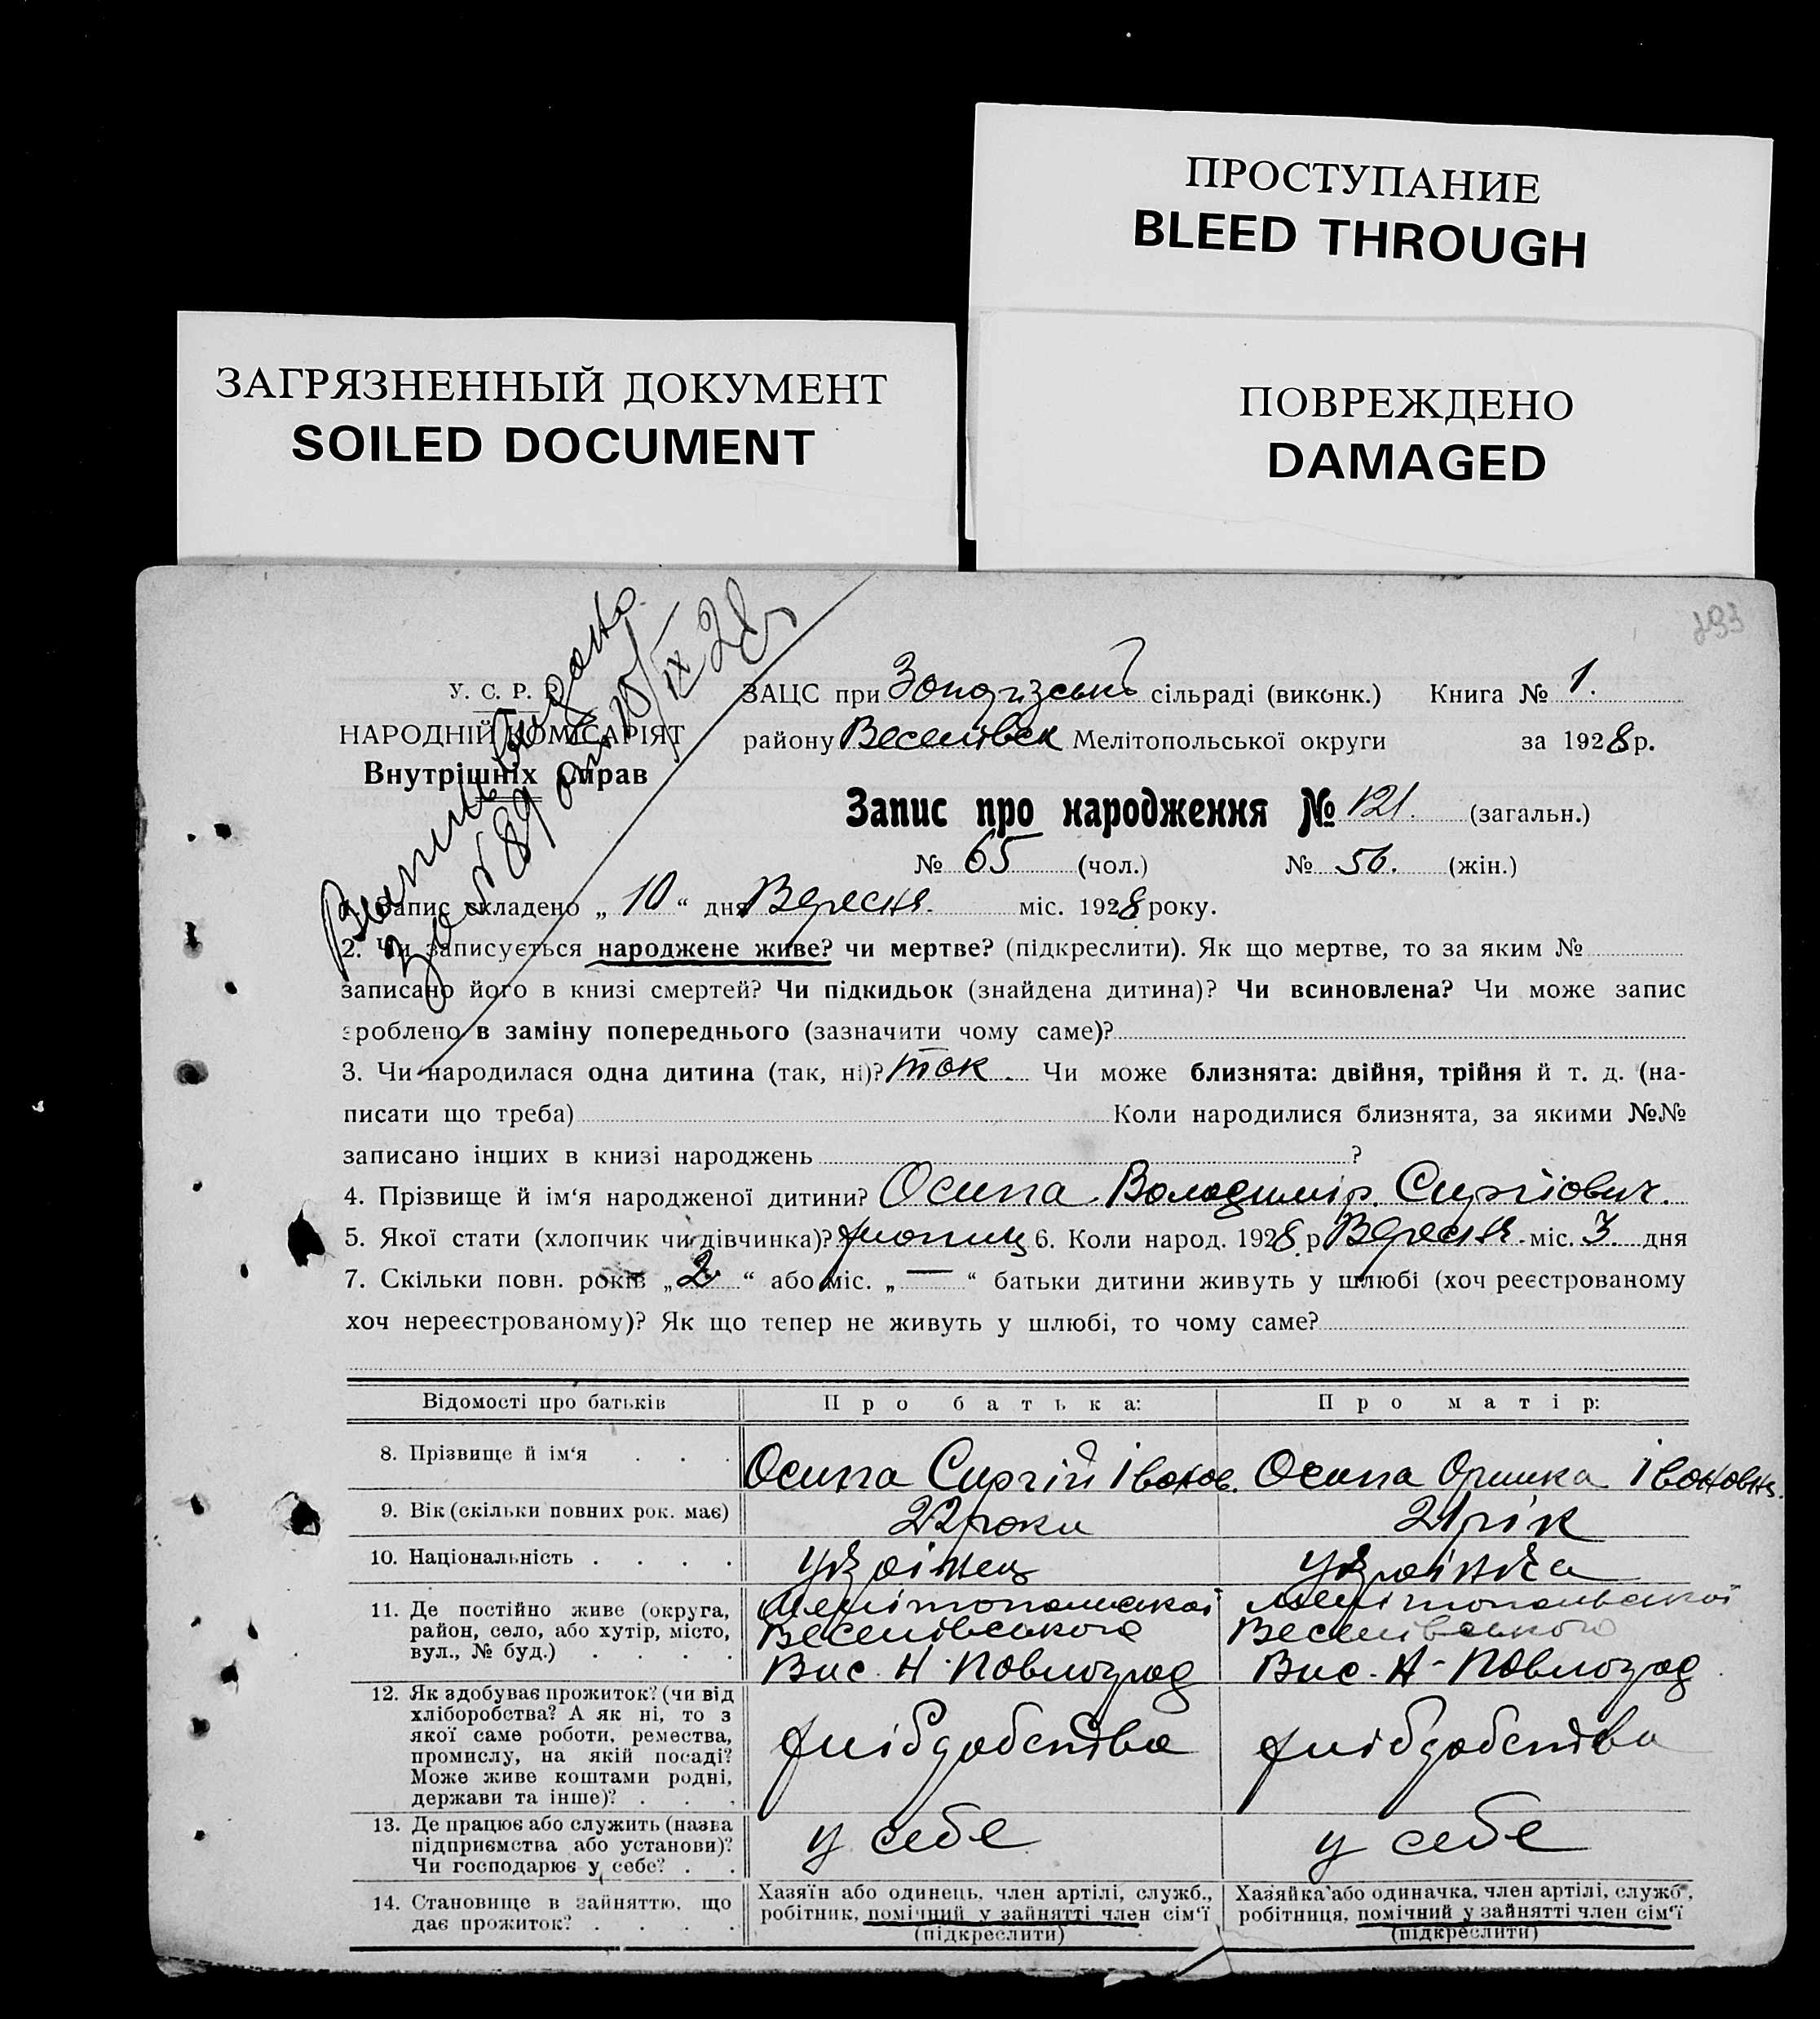 ПРОСТУПАНИЕ
BLEED THROUGH
ЗАГРЯЗНЕННЫЙ ДОКУМЕНТ
SOILED DOCUMENT
ПОВРЕЖДЕНО
DAMAGED
293
У. С. Р. Р.
НАРОДНІЙ КОМІСАРІЯТ
Внутрішніх Справ
Виписъ видано
за № 89 10/IX 28 р
ЗАЦС при сільраді (виконк.) Книга № 1.
району Веселівськ Мелітопольської округи за 1928 р.
Запис про народження № 121. (загальн.)
№ 65 (чол.) № 56. (жін.)
1. Запис складено „ 10 “ дня Вересня. міс. 1928 року.
2. Чи записується народжене живе? чи мертве? (підкреслити). Як що мертве, то за яким №
записано його в книзі смертей? Чи підкидьок (знайдена дитина)? Чи всиновлена? Чи може запис
зроблено в заміну попереднього (зазначити чому саме)?
3. Чи народилася одна дитина (так, ні)? так. Чи може близнята: двійня, трійня й т. д. (на-
писати що треба) Коли народилися близнята, за якими №№
записано інших в книзі народжень ?
4. Прізвище й ім‘я народженої дитини? Осипа Володимір Сиргіович.
5. Якої стати (хлопчик чи дівчинка)? хлопиц 6. Коли народ. 1928 р. Вересня міс. 3 дня
7. Скільки повн. років „ 2 “ або міс. „ — “ батьки дитини живуть у шлюбі (хоч реєстрованому
хоч нереєстрованому)? Як що тепер не живуть у шлюбі, то чому саме?
Відомості про батьків Про батька: Про матір:
8. Прізвище й ім‘я Осипа Сиргій Іванов. Осипа Оришка Івановна.
9. Вік (скільки повних рок. має) 22 роки 21 рік
10. Національність українец українка
11. Де постійно живе (округа, район, село, або хутір, місто, вул., № буд.)
Мелітопольскої Мелітопольскої
Веселівського Веселівського
Вис. Н-Павлоград Вис. Н-Павлоград
12. Як здобуває прожиток? (чи від
хліборобства? А як ні, то з
якої саме роботи, ремества,
промислу, на якій посаді?
Може живе коштами родні,
держави та інше)?
хлібробства хлібробства
13. Де працює або служить (назва
підприємства або установи)?
Чи господарює у себе?
у себе у себе
14. Становище в зайняттю, що
дає прожиток?
Хазяїн або одинець, член артілі, служб.,
робітник, помічний у зайнятті член сім‘ї
(підкреслити)
Хазяйка або одиначка, член артілі, служб.,
робітниця, помічний у зайнятті член сім‘ї
(підкреслити)